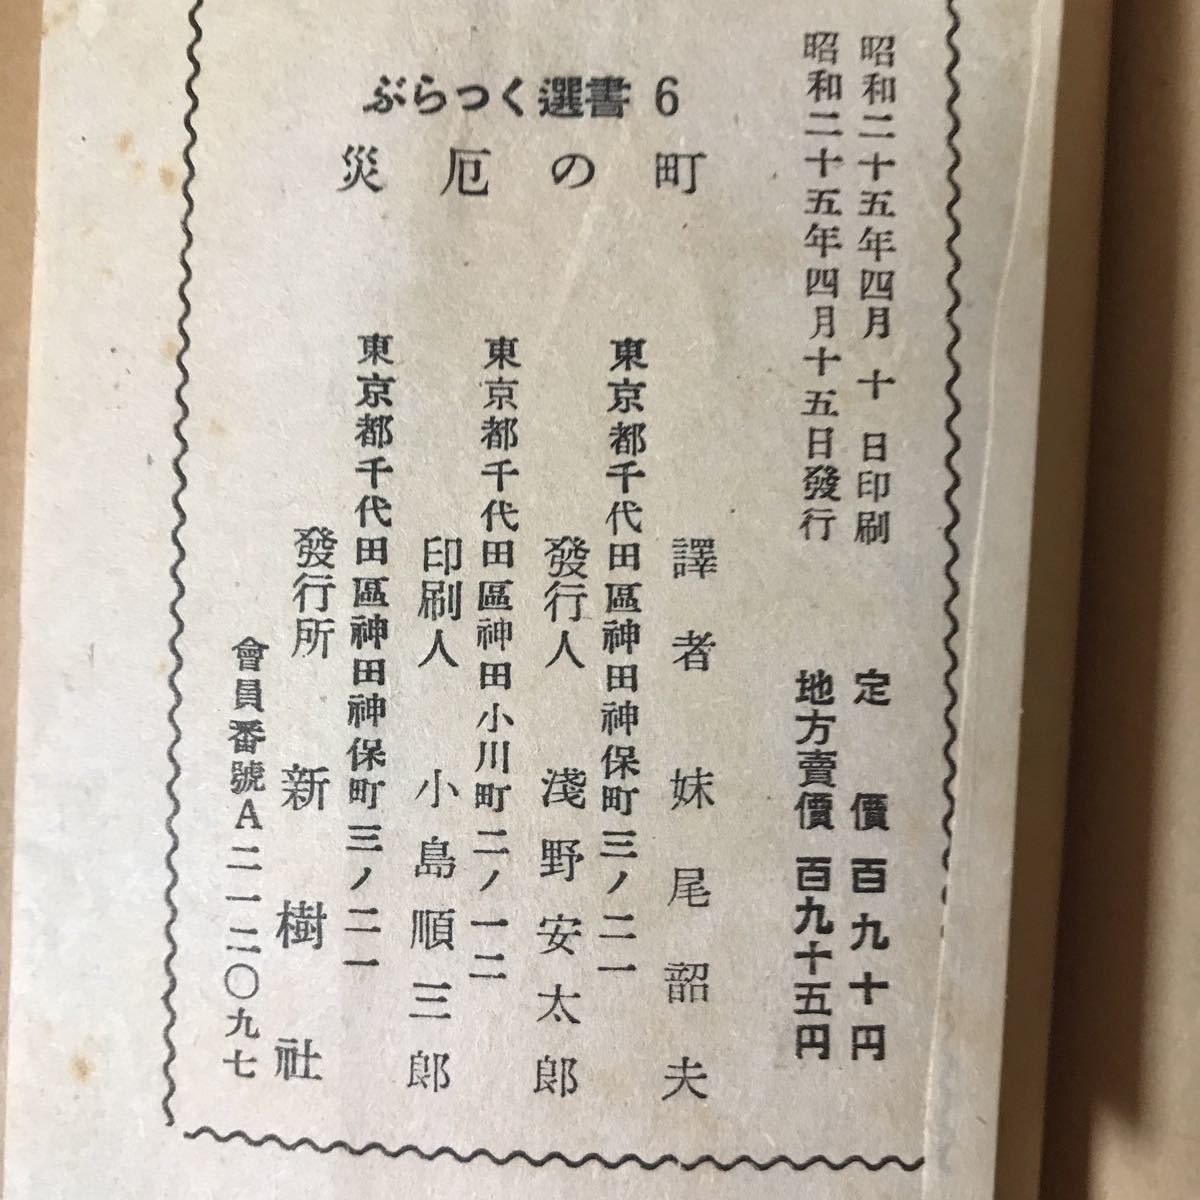 昭和二十五年四月十日印刷
昭和二十五年四月十五日發行
定價百九十円
地方賣價百九十五円
ぶらつく選書 6
災厄の町
譯者 妹尾韶夫
東京都千代田區神田神保町三ノ二一
發行人 淺野安太郎
東京都千代田區神田小川町二ノ一二
印刷人 小島順三郎
東京都千代田區神田神保町三ノ二一
發行所 新樹社
會員番號A二一二〇九七